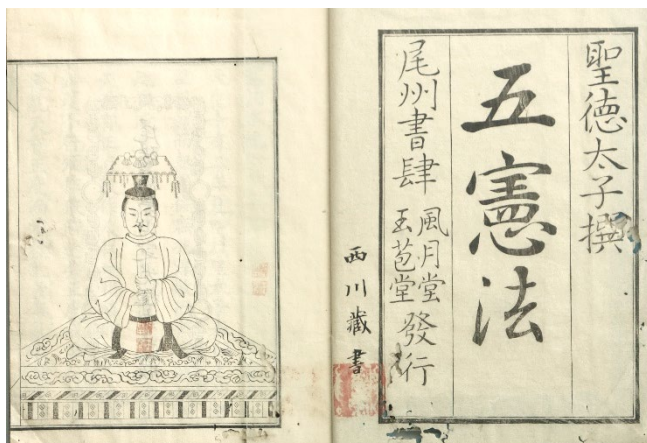 聖徳太子撰
五憲法
尾州書肆
風月堂
玉苞堂
發行
西川藏書